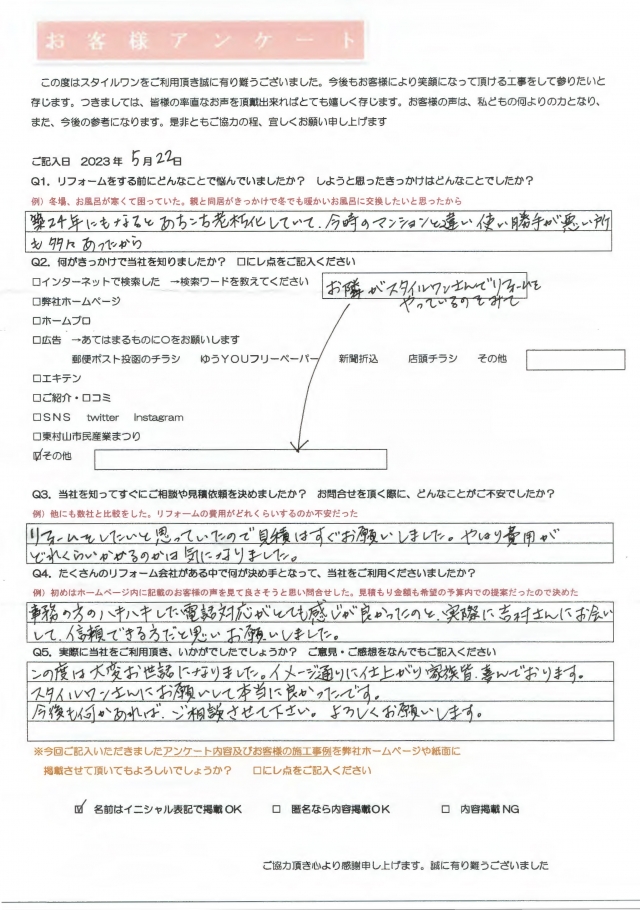 お客様アンケート
この度はスタイルワンをご利用頂き誠に有り難うございました。今後もお客様により笑顔になって頂ける工事をして参りたいと
存じます。つきましては、皆様の率直なお声を頂戴出来ればとても嬉しく存じます。お客様の声は、私どもの何よりの力となり、
また、今後の参考になります。是非ともご協力の程、宜しくお願い申し上げます
ご記入日 2023年 5月22日
Q1．リフォームをする前にどんなことで悩んでいましたか？ しようと思ったきっかけはどんなことでしたか？
例）冬場、お風呂が寒くて困っていた。親と同居がきっかけで冬でも暖かいお風呂に交換したいと思ったから
築24年にもなるとあちこち老朽化していて、今時のマンションと違い使い勝手が悪い所
も多々あったから
Q2．何がきっかけで当社を知りましたか？ □にレ点をご記入ください
□インターネットで検索した →検索ワードを教えてください
お隣がスタイルワンさんでリフォームを
やっているのをみて
□弊社ホームページ
□ホームプロ
□広告 →あてはまるものに○をお願いします
郵便ポスト投函のチラシ ゆうYOUフリーペーパー 新聞折込 店頭チラシ その他
□エキテン
□ご紹介・口コミ
□SNS twitter Instagram
□東村山市民産業まつり
☑その他
Q3．当社を知ってすぐにご相談や見積依頼を決めましたか？ お問合せを頂く際に、どんなことがご不安でしたか？
例）他にも数社と比較をした。リフォームの費用がどれくらいするのか不安だった
リフォームをしたいと思っていたので見積はすぐお願いしました。やはり費用が
どれくらいかかるのかは気になりました。
Q4．たくさんのリフォーム会社がある中で何が決め手となって、当社をご利用くださいましたか？
例）初めはホームページ内に記載のお客様の声を見て良さそうと思い問合せした。見積もり金額も希望の予算内での提案だったので決めた
事務の方のハキハキした電話対応がとても感じが良かったのと、実際に吉村さんにお会い
して、信頼できる方だと思いお願いしました。
Q5．実際に当社をご利用頂き、いかがでしたでしょうか？ ご意見・ご感想をなんでもご記入ください
この度は大変お世話になりました。イメージ通りに仕上がり家族皆、喜んでおります。
スタイルワンさんにお願いして本当に良かったです。
今後も何かあれば、ご相談させて下さい。よろしくお願いします。
※今回ご記入いただきましたアンケート内容及びお客様の施工事例を弊社ホームページや紙面に
掲載させて頂いてもよろしいでしょうか？ □にレ点をご記入ください
☑ 名前はイニシャル表記で掲載OK □ 匿名なら内容掲載OK □ 内容掲載NG
ご協力頂き心より感謝申し上げます。誠に有り難うございました